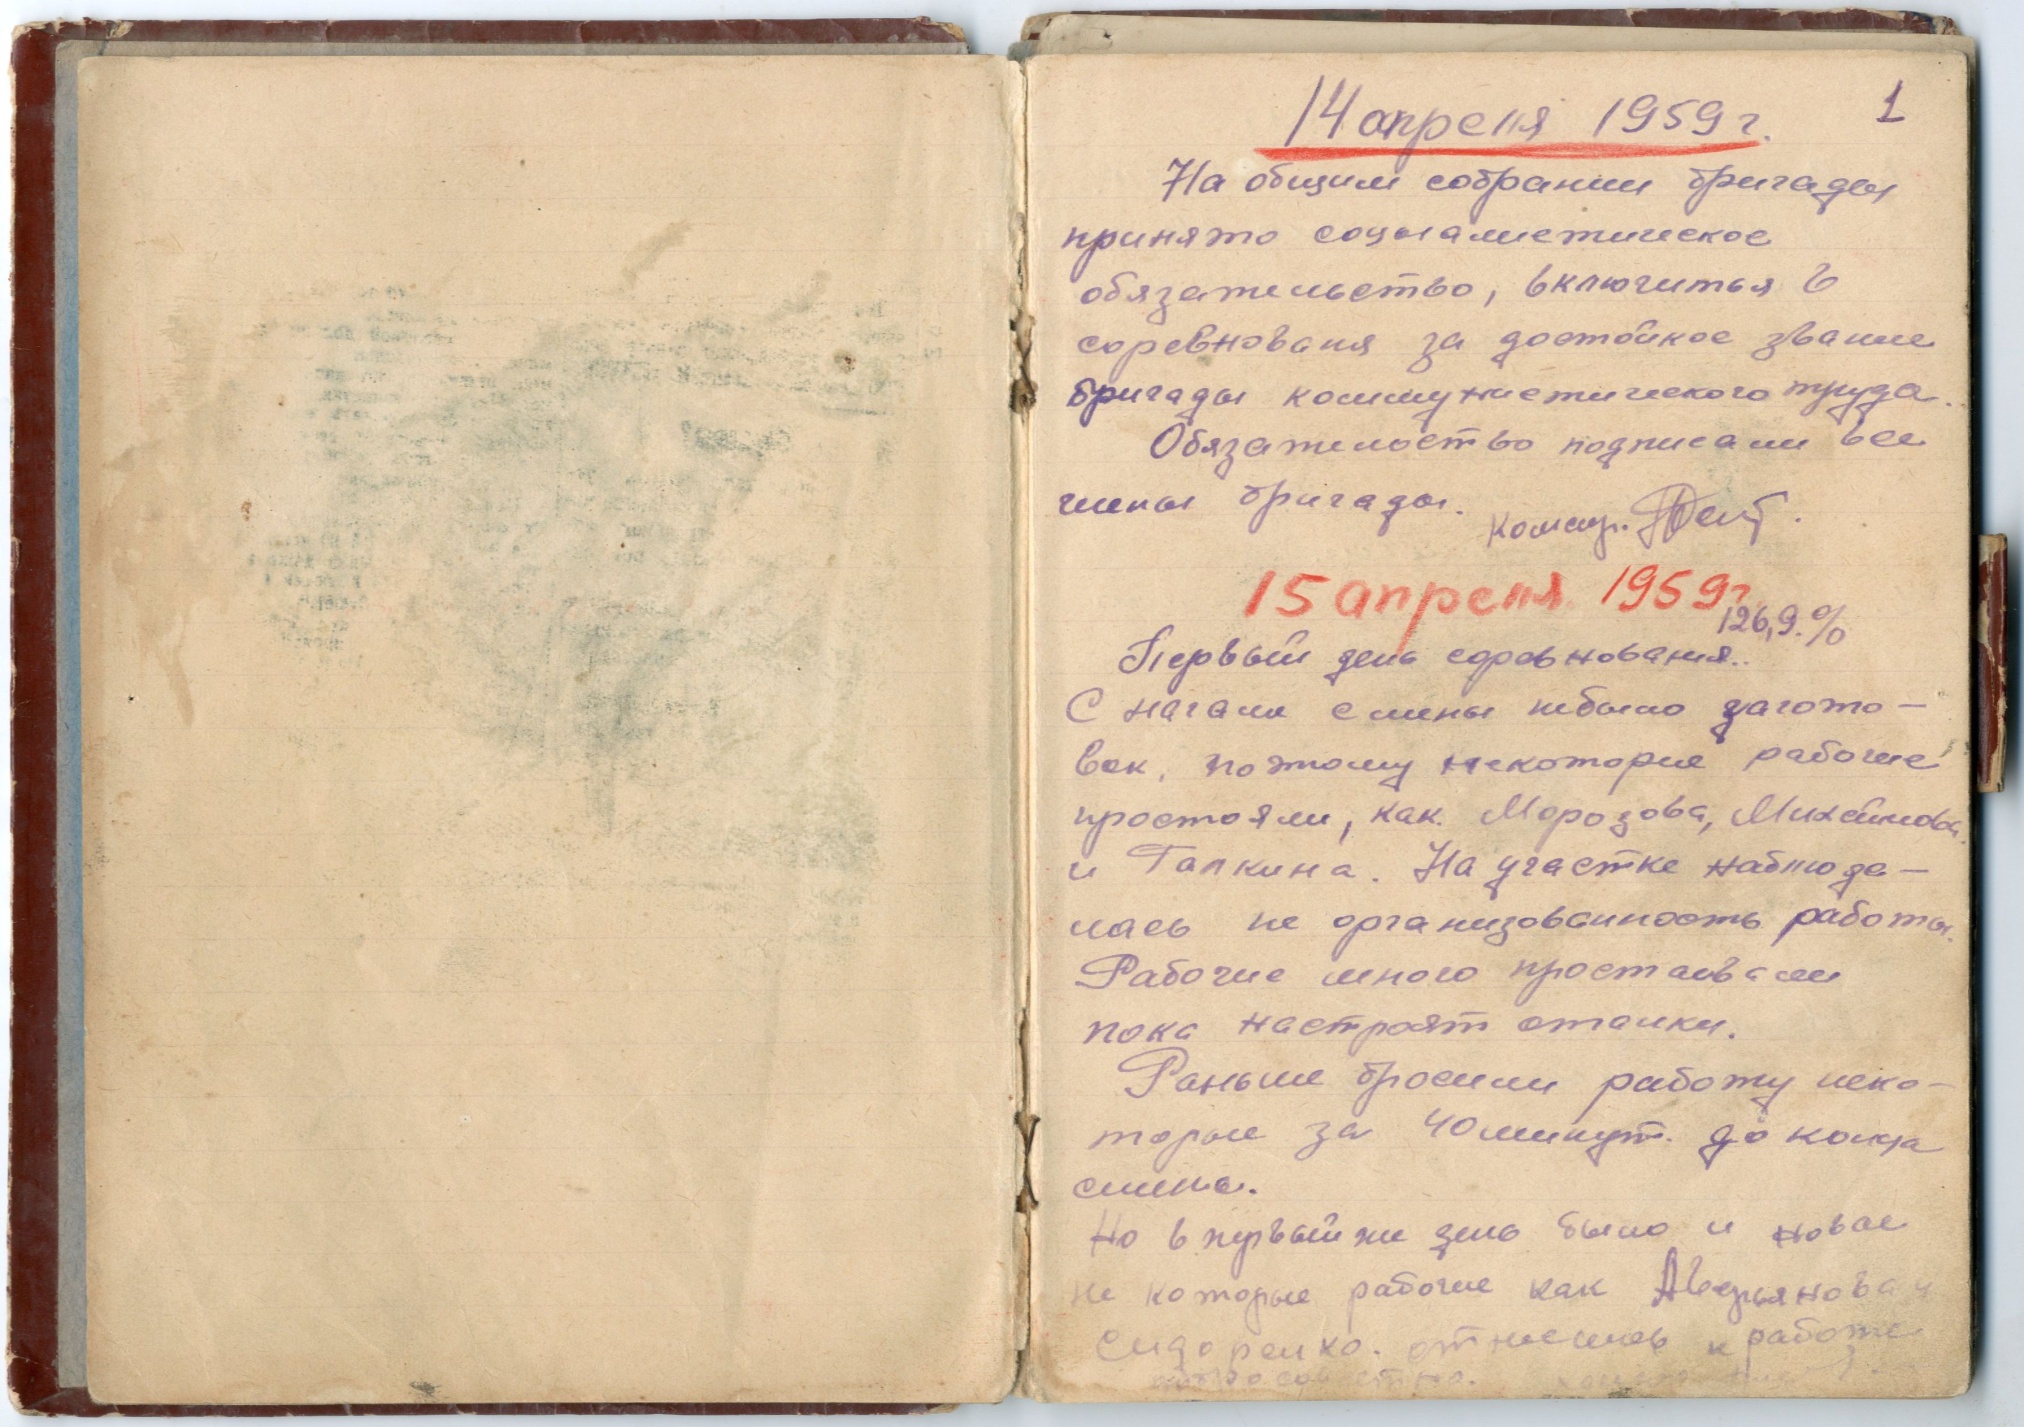 1
14 апреля 1959 г.
На общим собрании бригады
принято социалистическое
обязательство, включиться в
соревнования за достойное звание
бригады коммунистического труда.
Обязательство подписали все
члены бригады.
15 апреля 1959 г
126,9.%
Первый день соревнования..
С начали смены небыло загото-
вок, поэтому некоторые рабочие
простояли, как. Морозова, Михайлова
и Галкина. На участке наблюда-
лась не организованность работы.
Рабочие много простаивали
пока настроят станки.
Раньше бросили работу неко-
торые за 40 минут. до конца
смены.
Но в первый же день было и новое
не которые рабочие как Аверьянова и
Сидоренко. отнеслись к работе